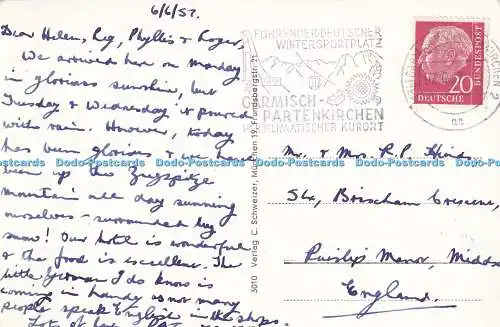 6/6/57.
Dear Helen, Reg, Phyllis & Roger,
We arrived here on Monday
in glorious sunshine, but
Tuesday & Wednesday it poured
with rain. However, today
has been glorious & we have
been up the Zugspitze
mountain all day sunning
ourselves - surrounded by
snow! Our hotel is wonderful
& the food is excellent. The
little German I do know is
coming in handy as not many
people speak English in the shops.
Lots of love
3010 Verlag C. Schweizer, München 19, Frundsbergstr. 21
FÜHRENDER DEUTSCHER
WINTERSPORTPLATZ
GARMISCH-
PARTENKIRCHEN
HEILKLIMATISCHER KURORT
DEUTSCHE BUNDESPOST
20
Mr. & Mrs. R. P. Hind
Brixham Crescent,
Ruislip Manor, Middx
England.
Dodo-Postcards Dodo-Postcards Dodo-Postcards Dodo-Postcards Dodo-Postcards